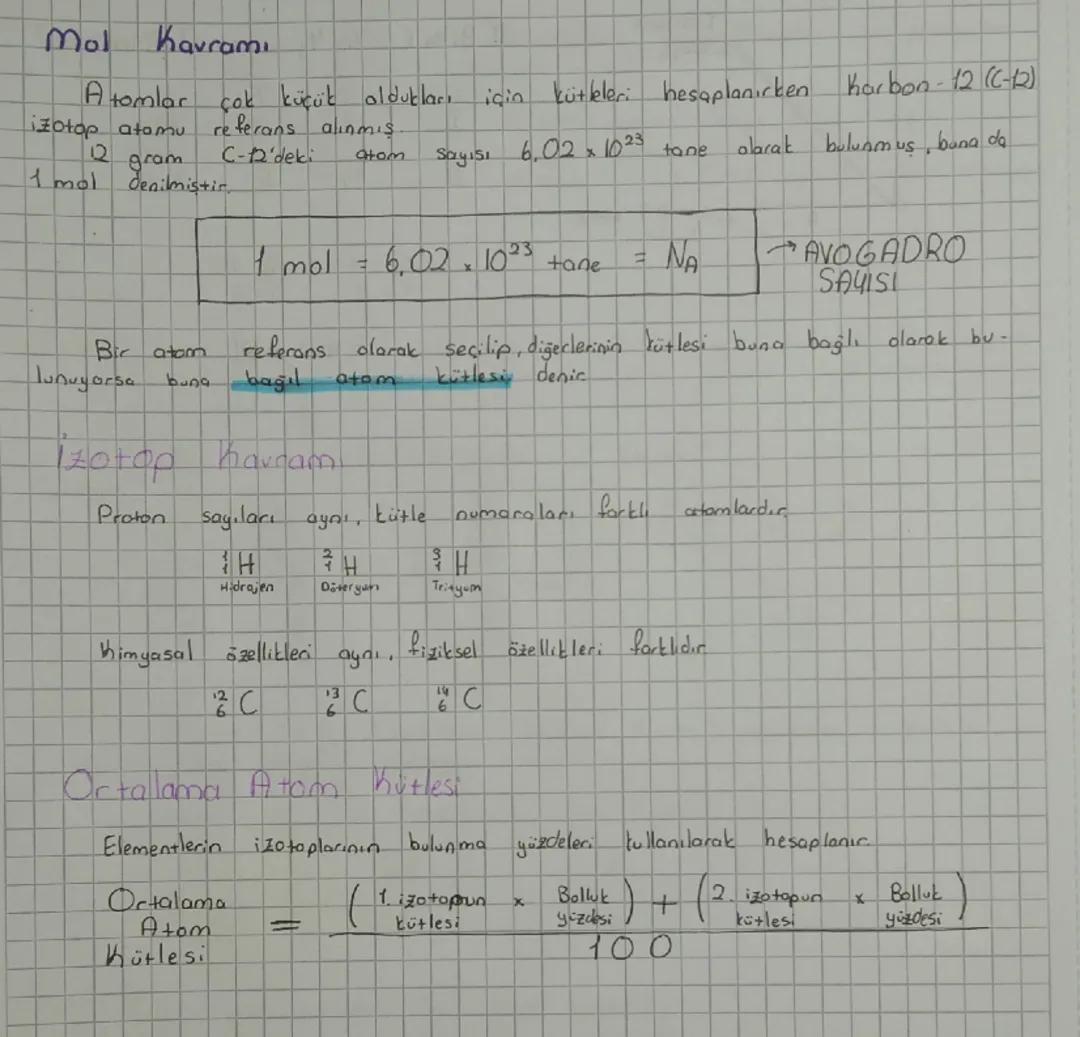 Mol Kavramı
Atomlar çok küçük oldukları için kütleleri hesaplanırken Karbon-12 (C-12)
izotop atomu referans alınmış.
12 gram C-12'deki atom sayısı 6,02 x 10²³ tane olarak bulunmuş, buna da
1 mol denilmiştir.
1 mol = 6,02 x 10²³ tane = NA → AVOGADRO
SAYISI
Bir atom referans olarak seçilip, diğerlerinin kütlesi buna bağlı olarak bu-
lunuyorsa buna bağıl atom kütlesi denir.
İzotop Kavramı
Proton sayıları aynı, kütle numaraları farklı atomlardır.
¹₁H ²₁H ³₁H
Hidrojen Döteryum Trityum
Kimyasal özellikleri aynı, fiziksel özellikleri farklıdır.
¹²₆C ¹³₆C ¹⁴₆C
Ortalama Atom Kütlesi
Elementlerin izotoplarının bulunma yüzdeleri kullanılarak hesaplanır.
Ortalama Atom Kütlesi = (1. izotopun kütlesi x Bolluk yüzdesi) + (2. izotopun kütlesi x Bolluk yüzdesi)
100